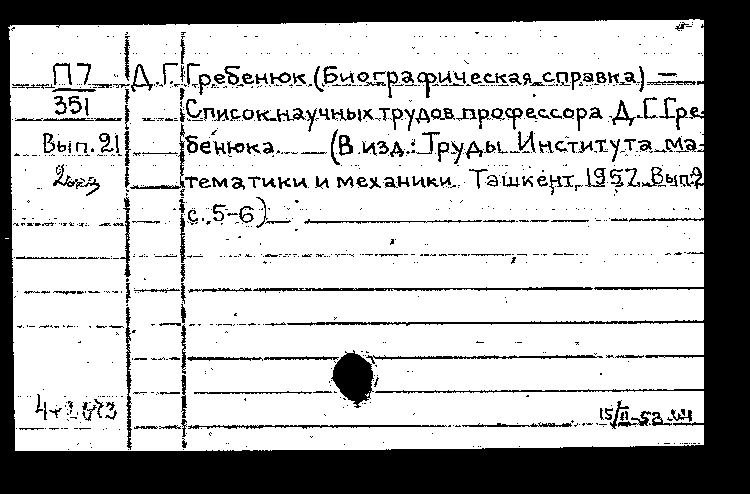 П7 Д.Г. Гребенюк (Биографическая справка) —
351 Список научных трудов профессора Д.Г. Гре-
Вып. 21 бенюка. (В изд.: Труды Института ма-
2экз тематики и механики. Ташкент, 1957. Вып.
с. 5-6)
15/II-58